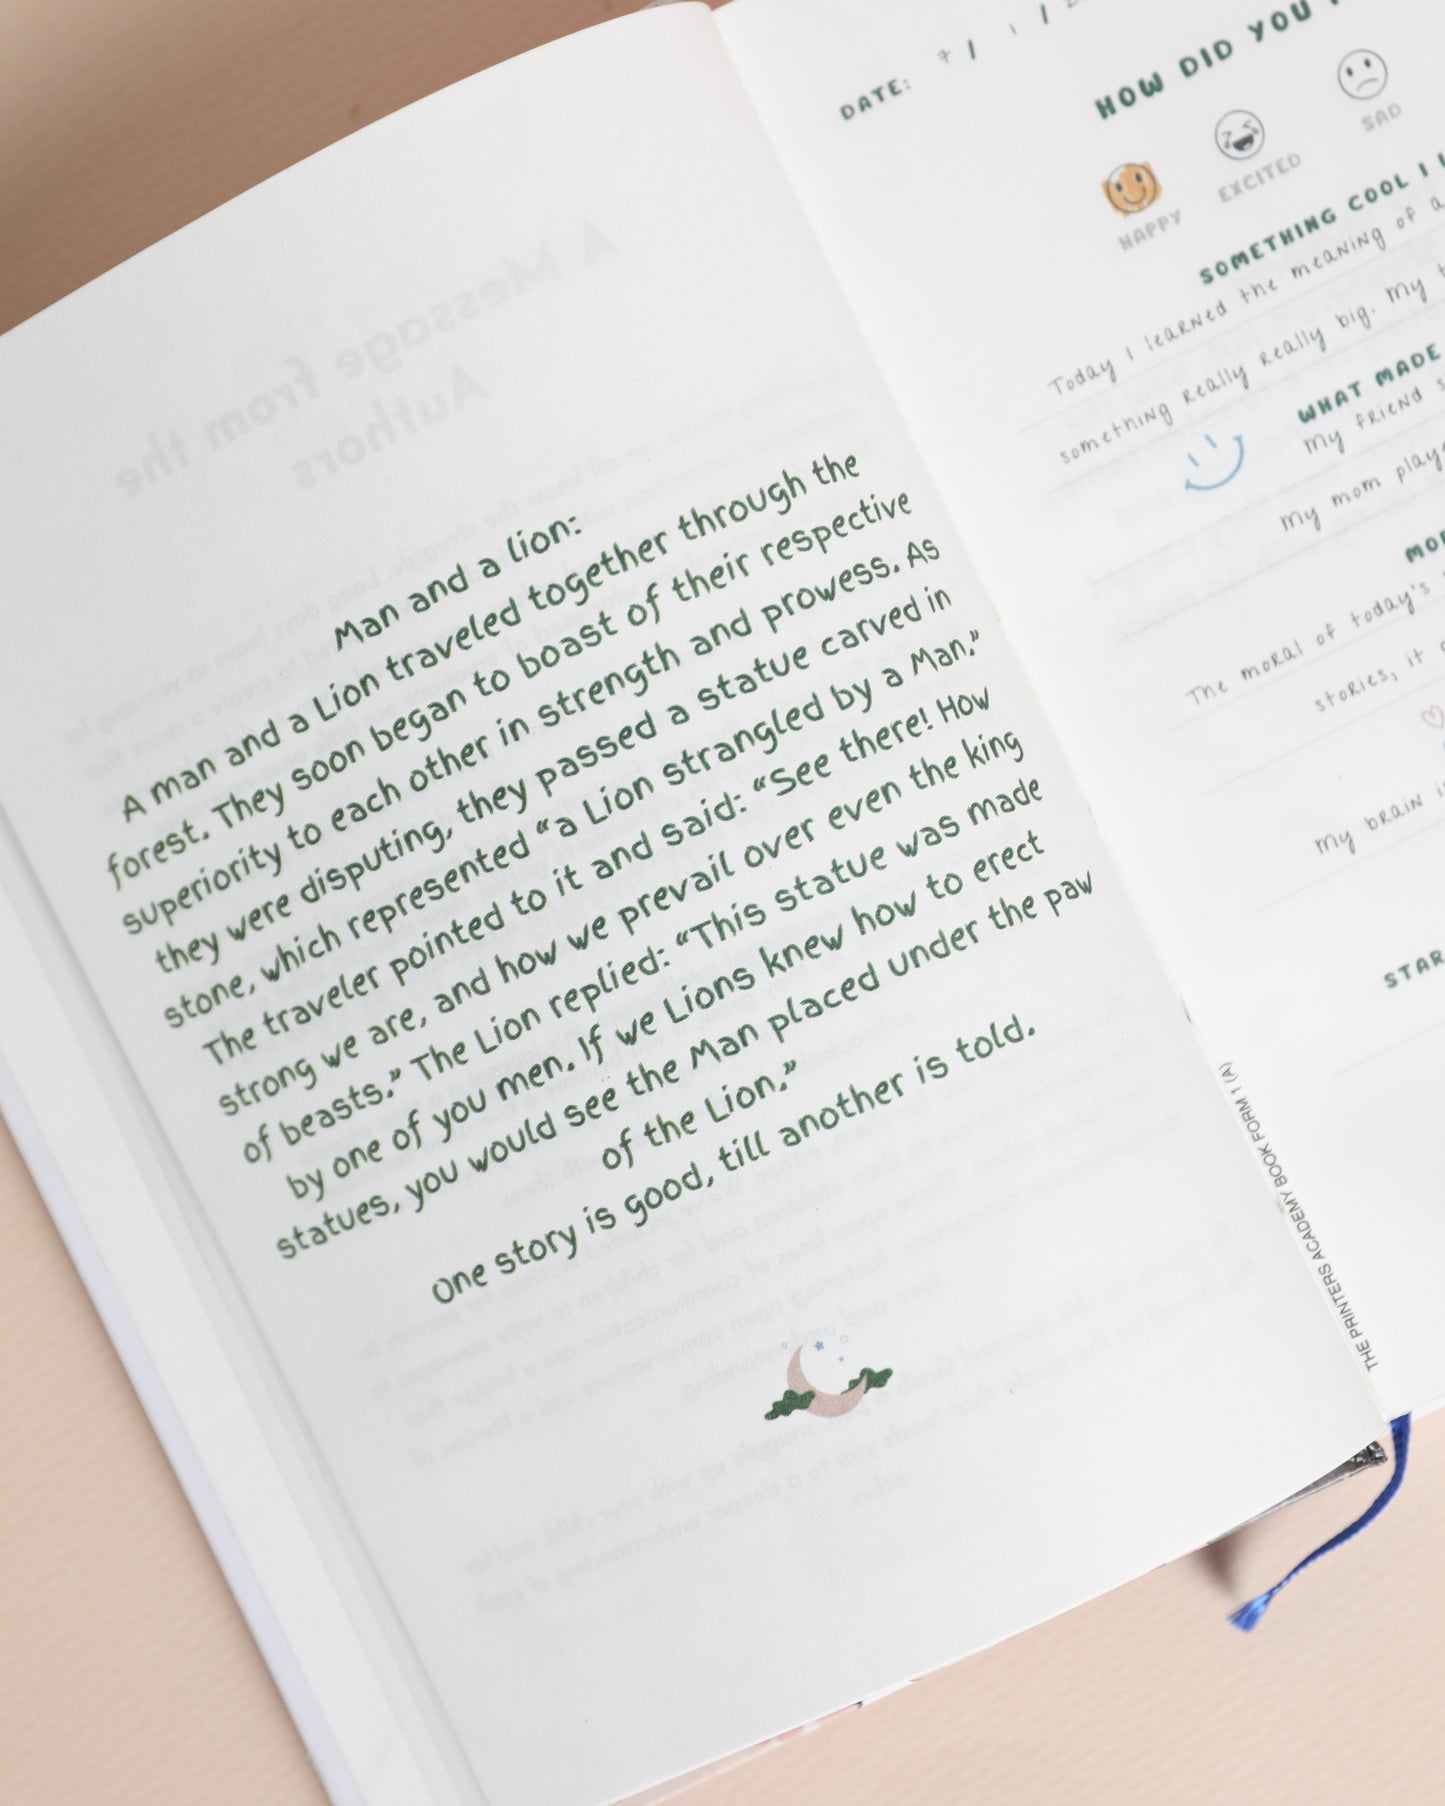 Man and a lion:
A man and a Lion traveled together through the
forest. They soon began to boast of their respective
superiority to each other in strength and prowess. As
they were disputing, they passed a statue carved in
stone, which represented “a Lion strangled by a Man.”
The traveler pointed to it and said: “See there! How
strong we are, and how we prevail over even the king
of beasts.” The Lion replied: “This statue was made
by one of you men. If we Lions knew how to erect
statues, you would see the Man placed under the paw
of the Lion.”
One story is good, till another is told.
DATE:
HOW DID YOU
HAPPY
EXCITED
SAD
SOMETHING COOL I
Today I learned the meaning of a
something really really big. My
WHAT MADE
My friend
My mom
The moral of today's
stories, it
My brain
STAR
THE PRINTERS ACADEMY BOOK FORM 1 (A)